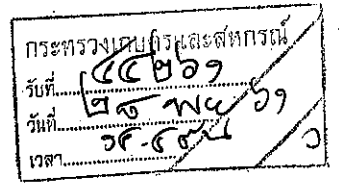 กระทรวงเกษตรและสหกรณ์
รับที่ ๔๔๒๖๑
วันที่ ๒๘ พย ๖๑
เวลา